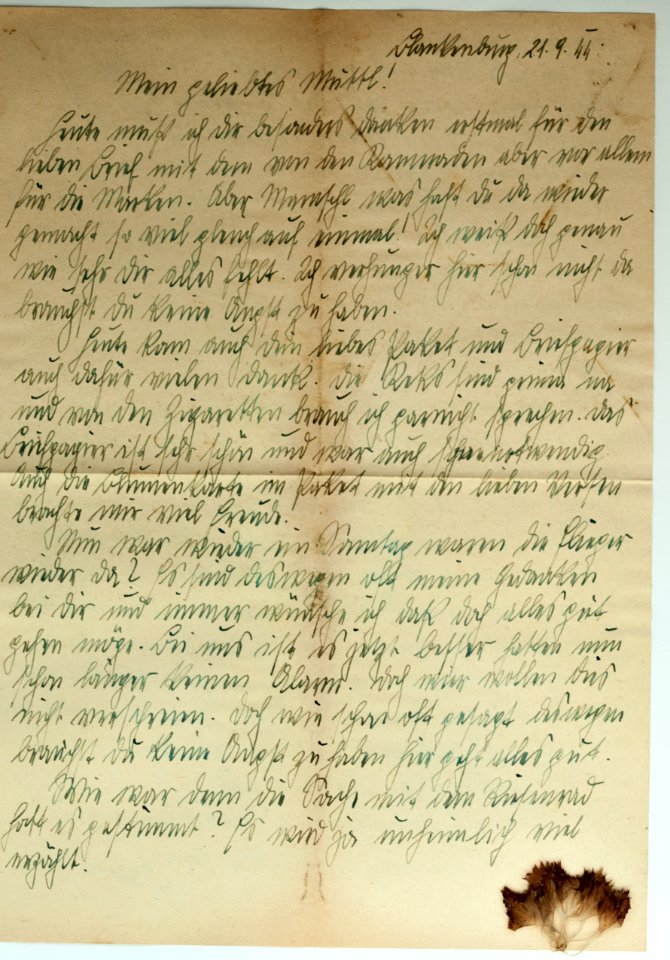 Blankenburg, 21.9.44.
Mein geliebtes Muttl!
Heute muß ich dir besonders danken erstmal für den
lieben Brief mit dem von den Kammaden aber vor allem
für die Marken. Aber Mamschl was hast du da wieder
gemacht so viel gleich auf einmal! Ich weiß doch genau
wie sehr dir alles fehlt. Ich verhunger hier schon nicht da
brauchst du keine Angst zu haben.
Heute kam auch dein liebes Paket und Briefpapier
auch dafür vielen Dank. Die Keks sind prima na
und von den Zigaretten brauch ich garnicht sprechen. Das
Briefpapier ist sehr schön und war auch schon notwendig.
Auch die Blumenkarte im Paket mit den lieben Versen
brachte mir viel Freude.
Nun war wieder ein Sonntag waren die Flieger
wieder da? Es sind deswegen oft meine Gedanken
bei dir und immer wünsche ich daß doch alles gut
gehen möge. Bei uns ist es jetzt besser hatten nun
schon länger keinen Alarm. Doch wir wollen dies
nicht verschreien. Doch wie schon oft gesagt deswegen
brauchst du keine Angst zu haben hier geht alles gut.
Wie war denn die Sache mit dem Riesenrad
hat es gestimmt? Es wird ja unheimlich viel
erzählt.